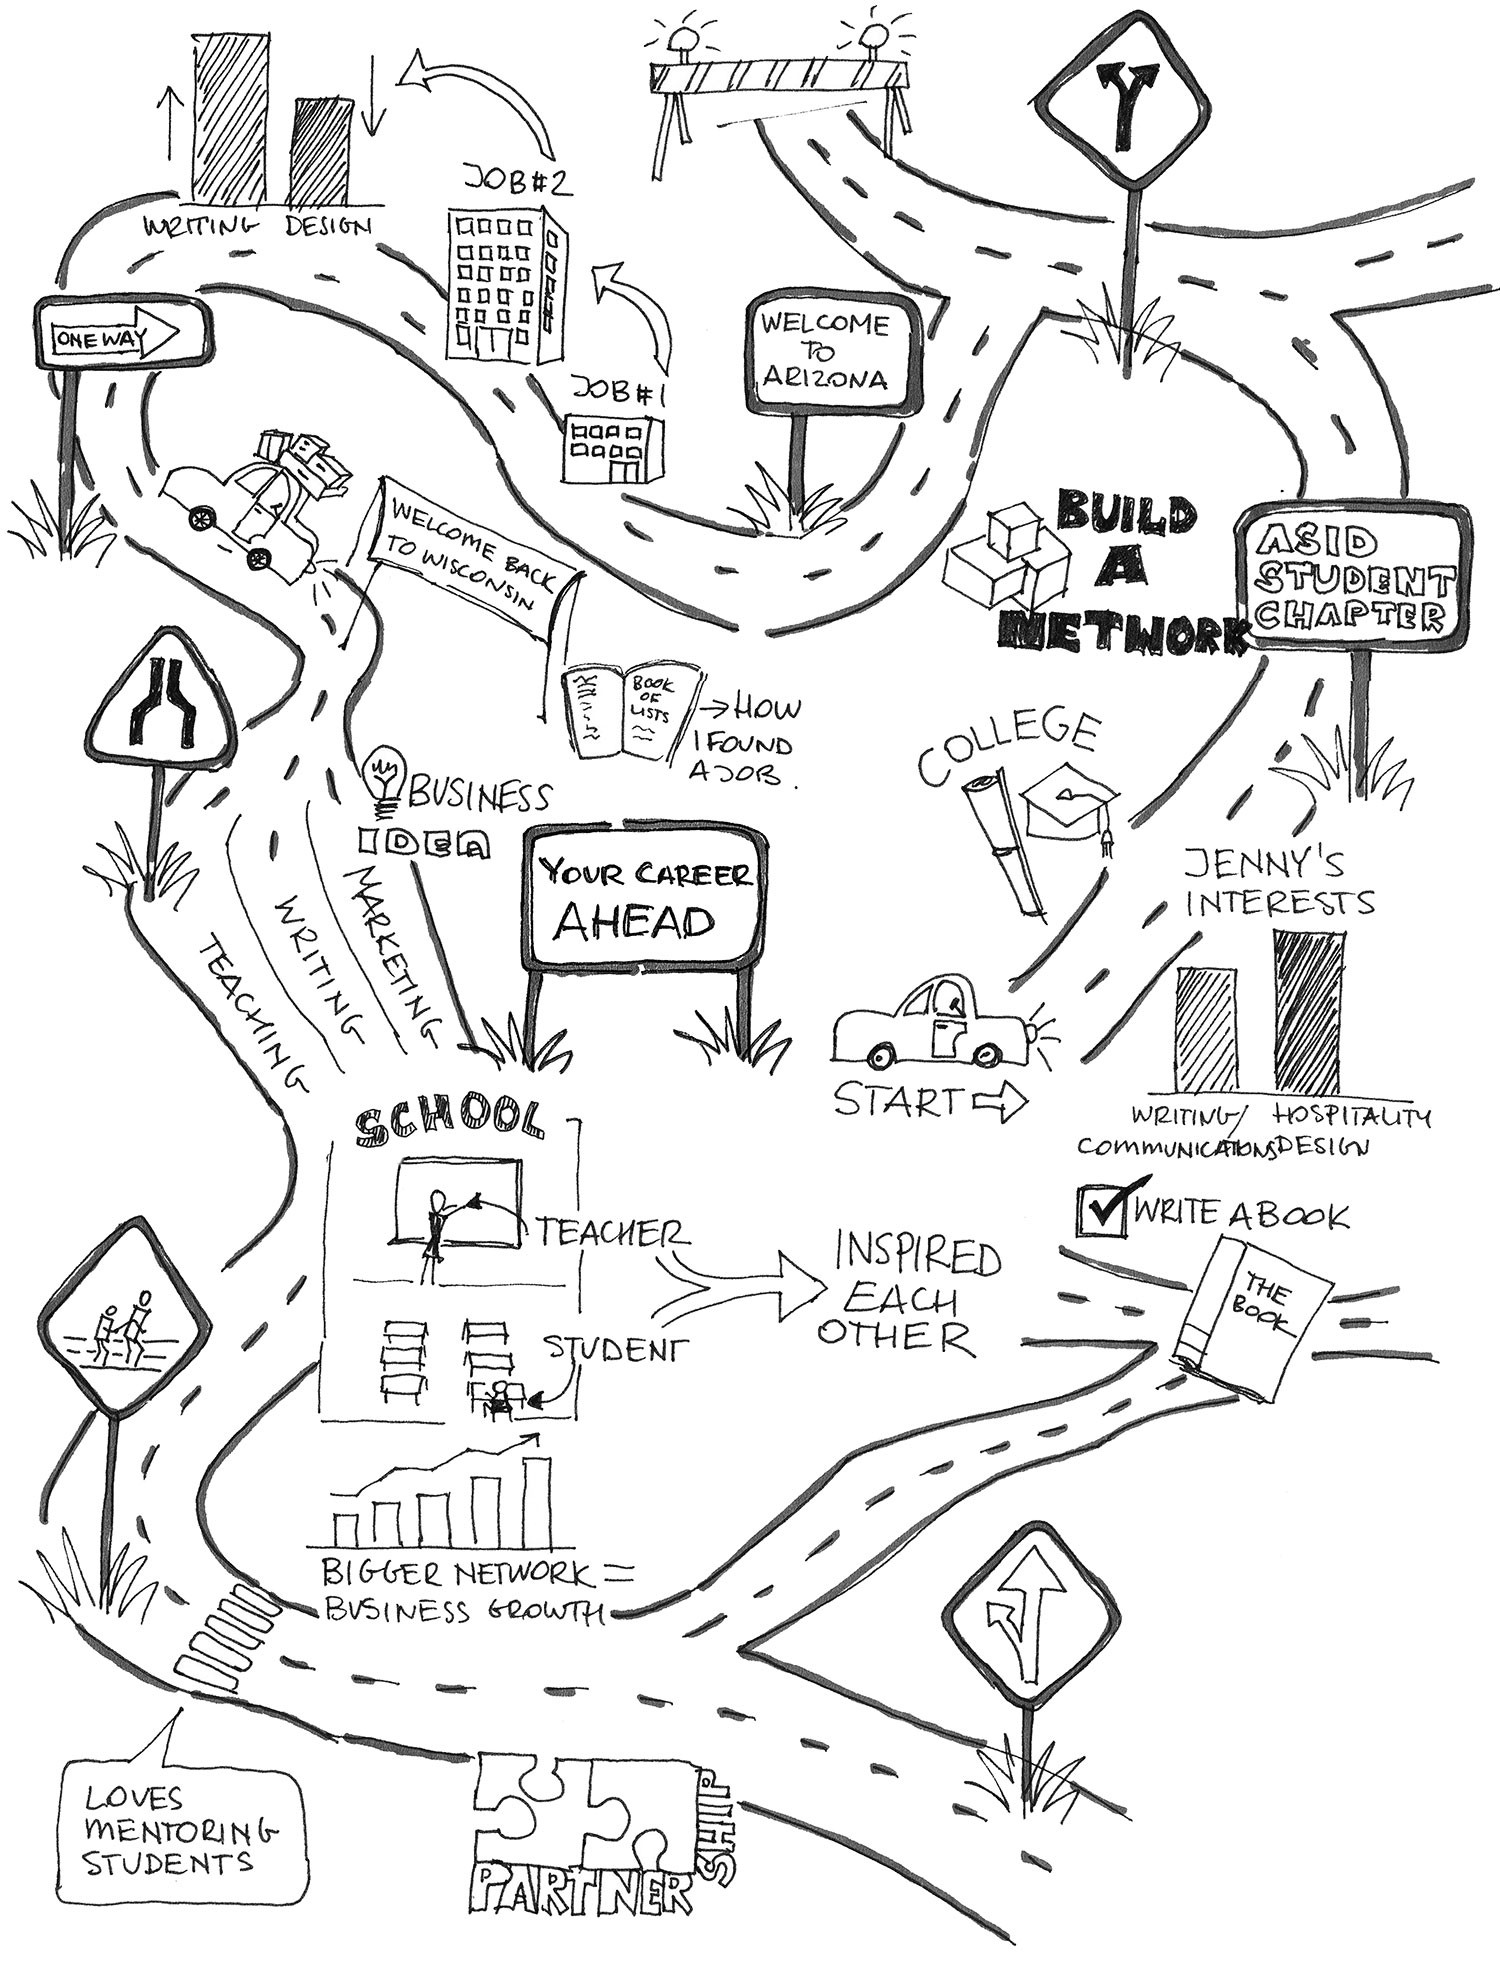 JOB #2
WRITING DESIGN
ONE WAY
JOB #1
WELCOME
TO
ARIZONA
WELCOME BACK
TO WISCONSIN
BUILD
A
NETWORK
ASID
STUDENT
CHAPTER
BOOK
OF
LISTS
→ HOW
I FOUND
A JOB.
COLLEGE
BUSINESS
IDEA
YOUR CAREER
AHEAD
JENNY'S
INTERESTS
TEACHING
WRITING
MARKETING
START
WRITING/
COMMUNICATIONS
HOSPITALITY
DESIGN
SCHOOL
TEACHER
STUDENT
INSPIRED
EACH
OTHER
WRITE A BOOK
THE
BOOK
BIGGER NETWORK =
BUSINESS GROWTH
LOVES
MENTORING
STUDENTS
PARTNER
SHIP